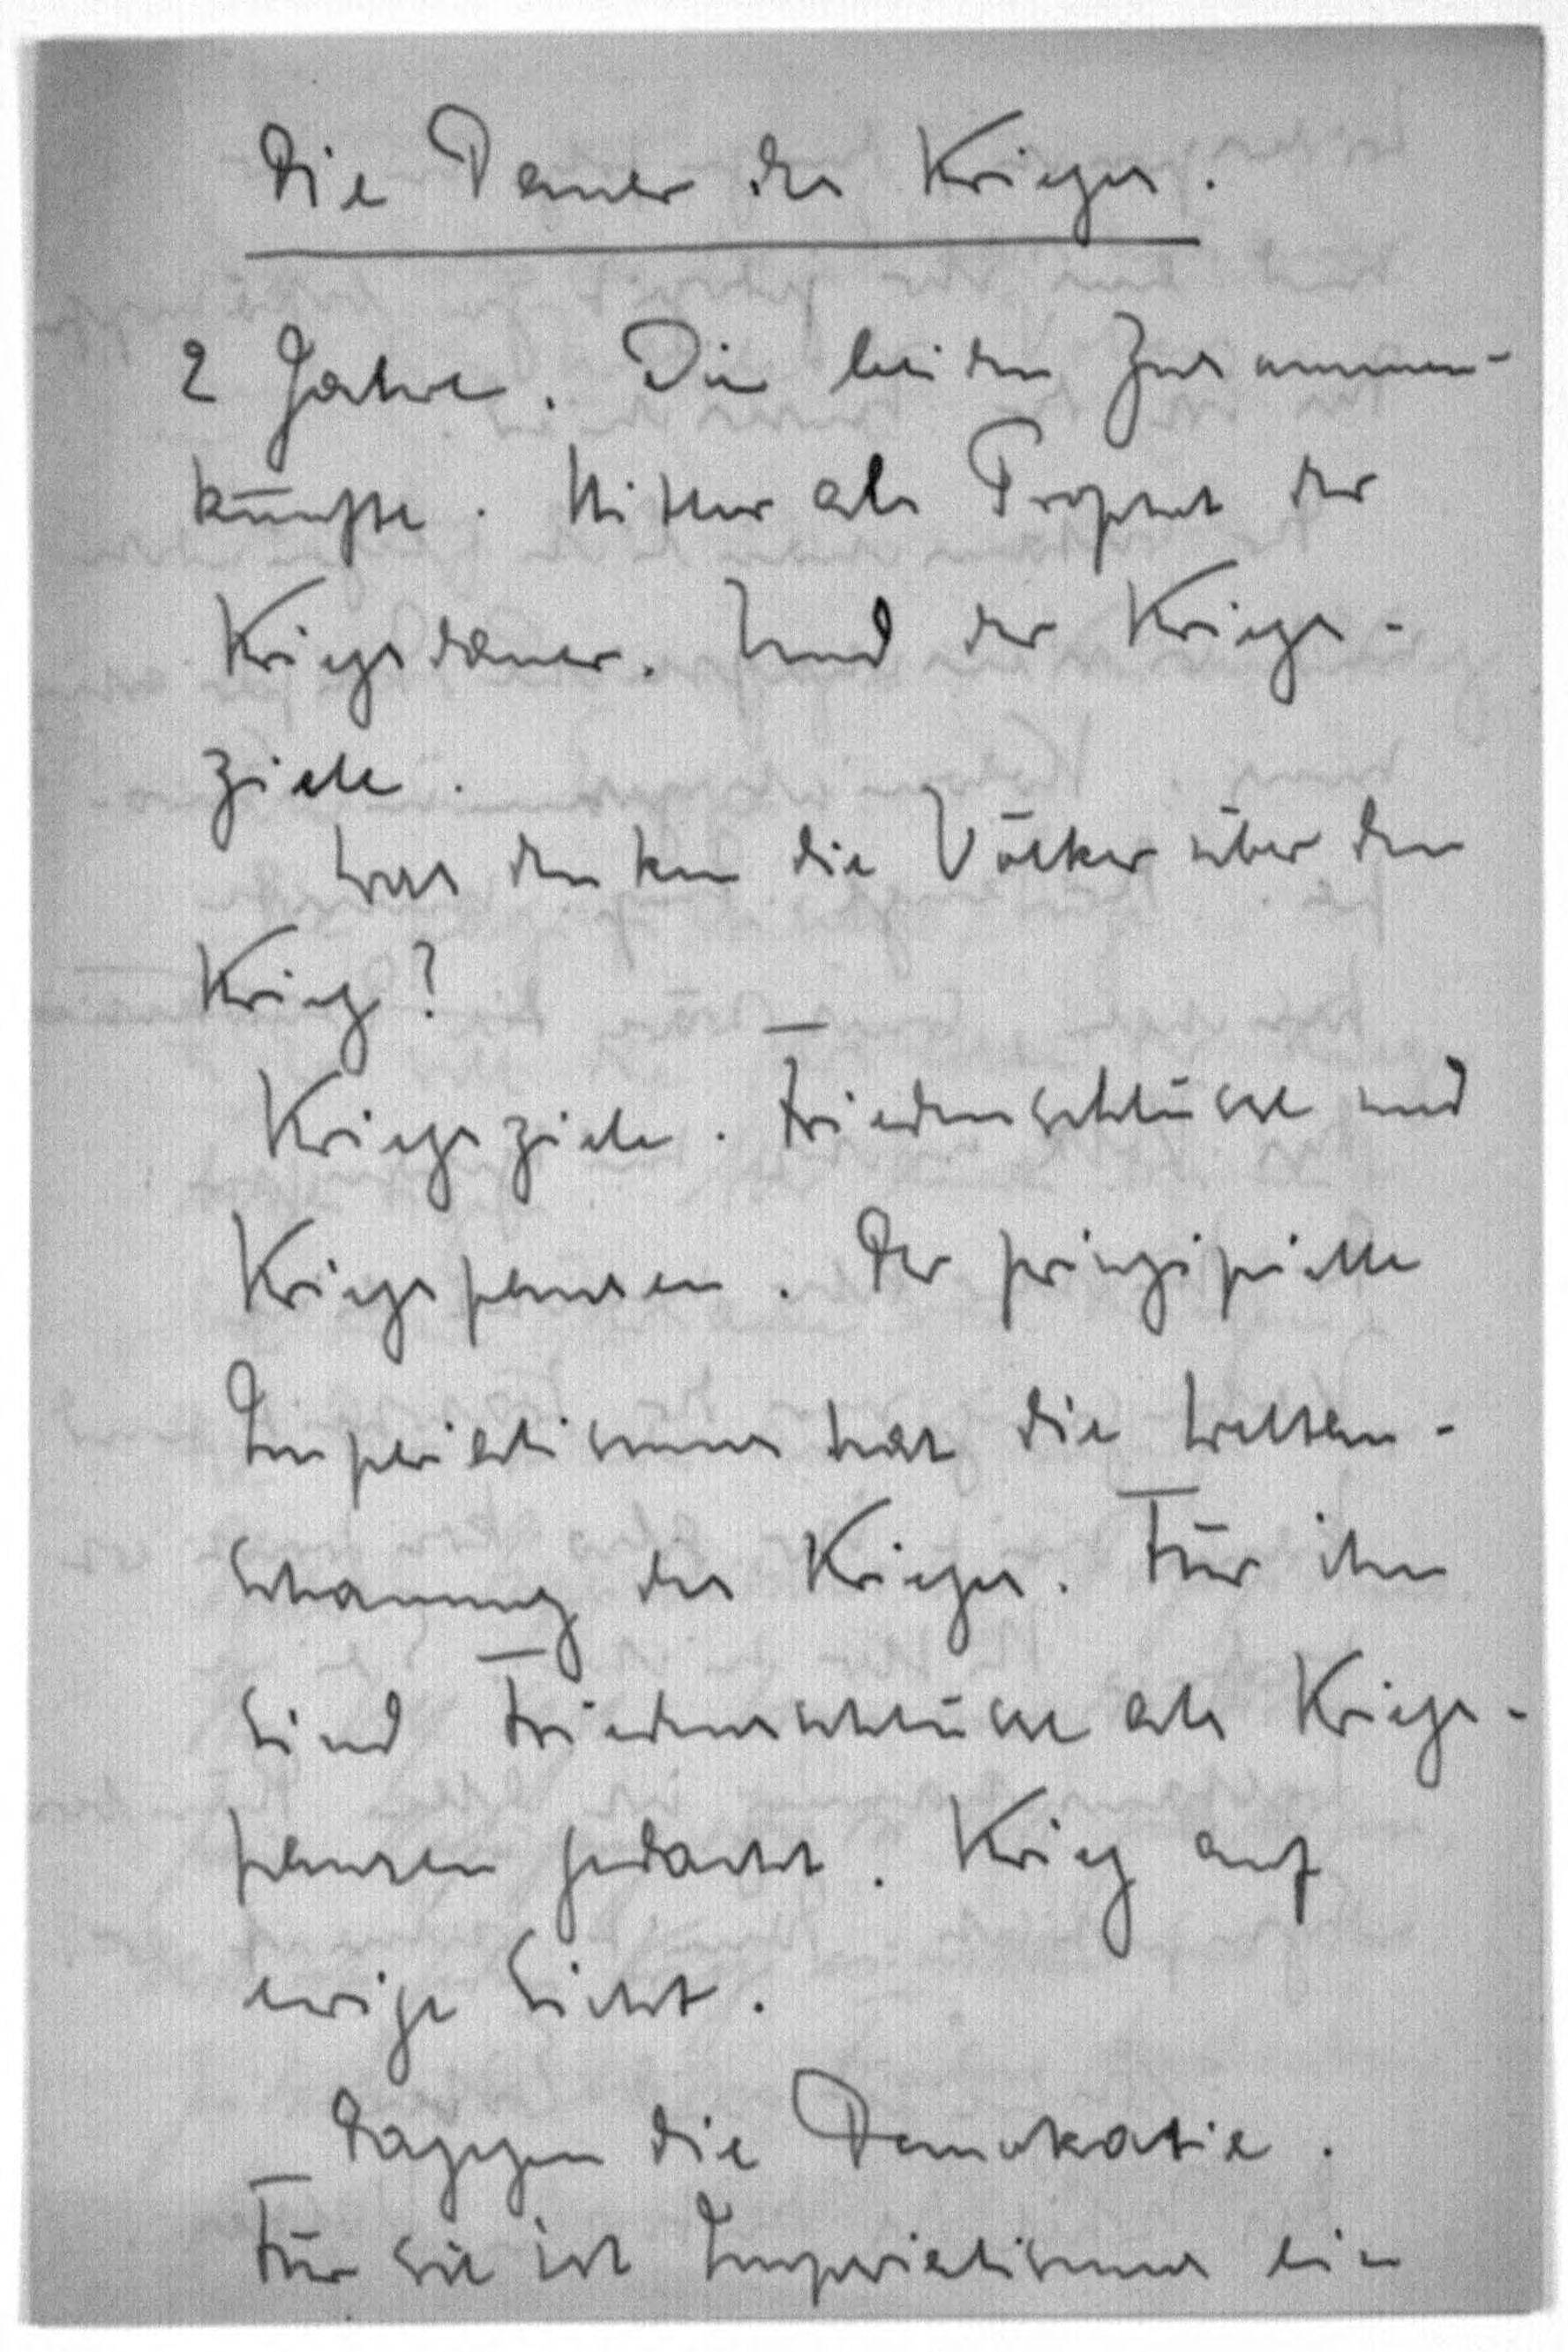 Die Dauer des Krieges.
2 Jahre. Die beiden Zusammen-
künfte. Hitler als Prophet der
Kriegsdauer. Und der Kriegs-
ziele.
Was denken die Völker über den
Krieg?
Kriegsziele. Friedenschlüsse und
Kriegspausen. Der prinzipielle
Imperialismus hat die Weltan-
schauung des Krieges. Für ihn
sind Friedensschlüsse als Kriegs-
pausen gedacht. Krieg auf
ewige Sicht.
Dagegen die Demokatie.
Für sie ist Imperialismus ein